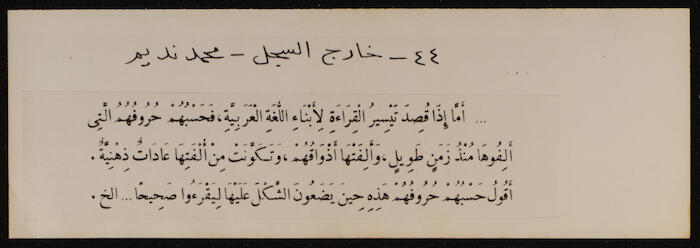 ٤٤ - خارج السجل - محمد نديم
... أَمَّا إِذَا قُصِدَ تَيْسِيرُ الْقِرَاءَةِ لِأَبْنَاءِ اللُّغَةِ الْعَرَبِيَّةِ، فَحَسْبُهُمْ حُرُوفُهُمُ الَّتِي
أَلِفُوهَا مُنْذُ زَمَنٍ طَوِيلٍ، وَأَلِفَتْهَا أَذْوَاقُهُمْ، وَتَكَوَّنَتْ مِنْ أُلْفَتِهَا عَادَاتٌ ذِهْنِيَّةٌ.
أَقُولُ حَسْبُهُمْ حُرُوفُهُمْ هَذِهِ حِينَ يَضَعُونَ الشَّكْلَ عَلَيْهَا لِيَقْرَءُوا صَحِيحًا ... الخ.